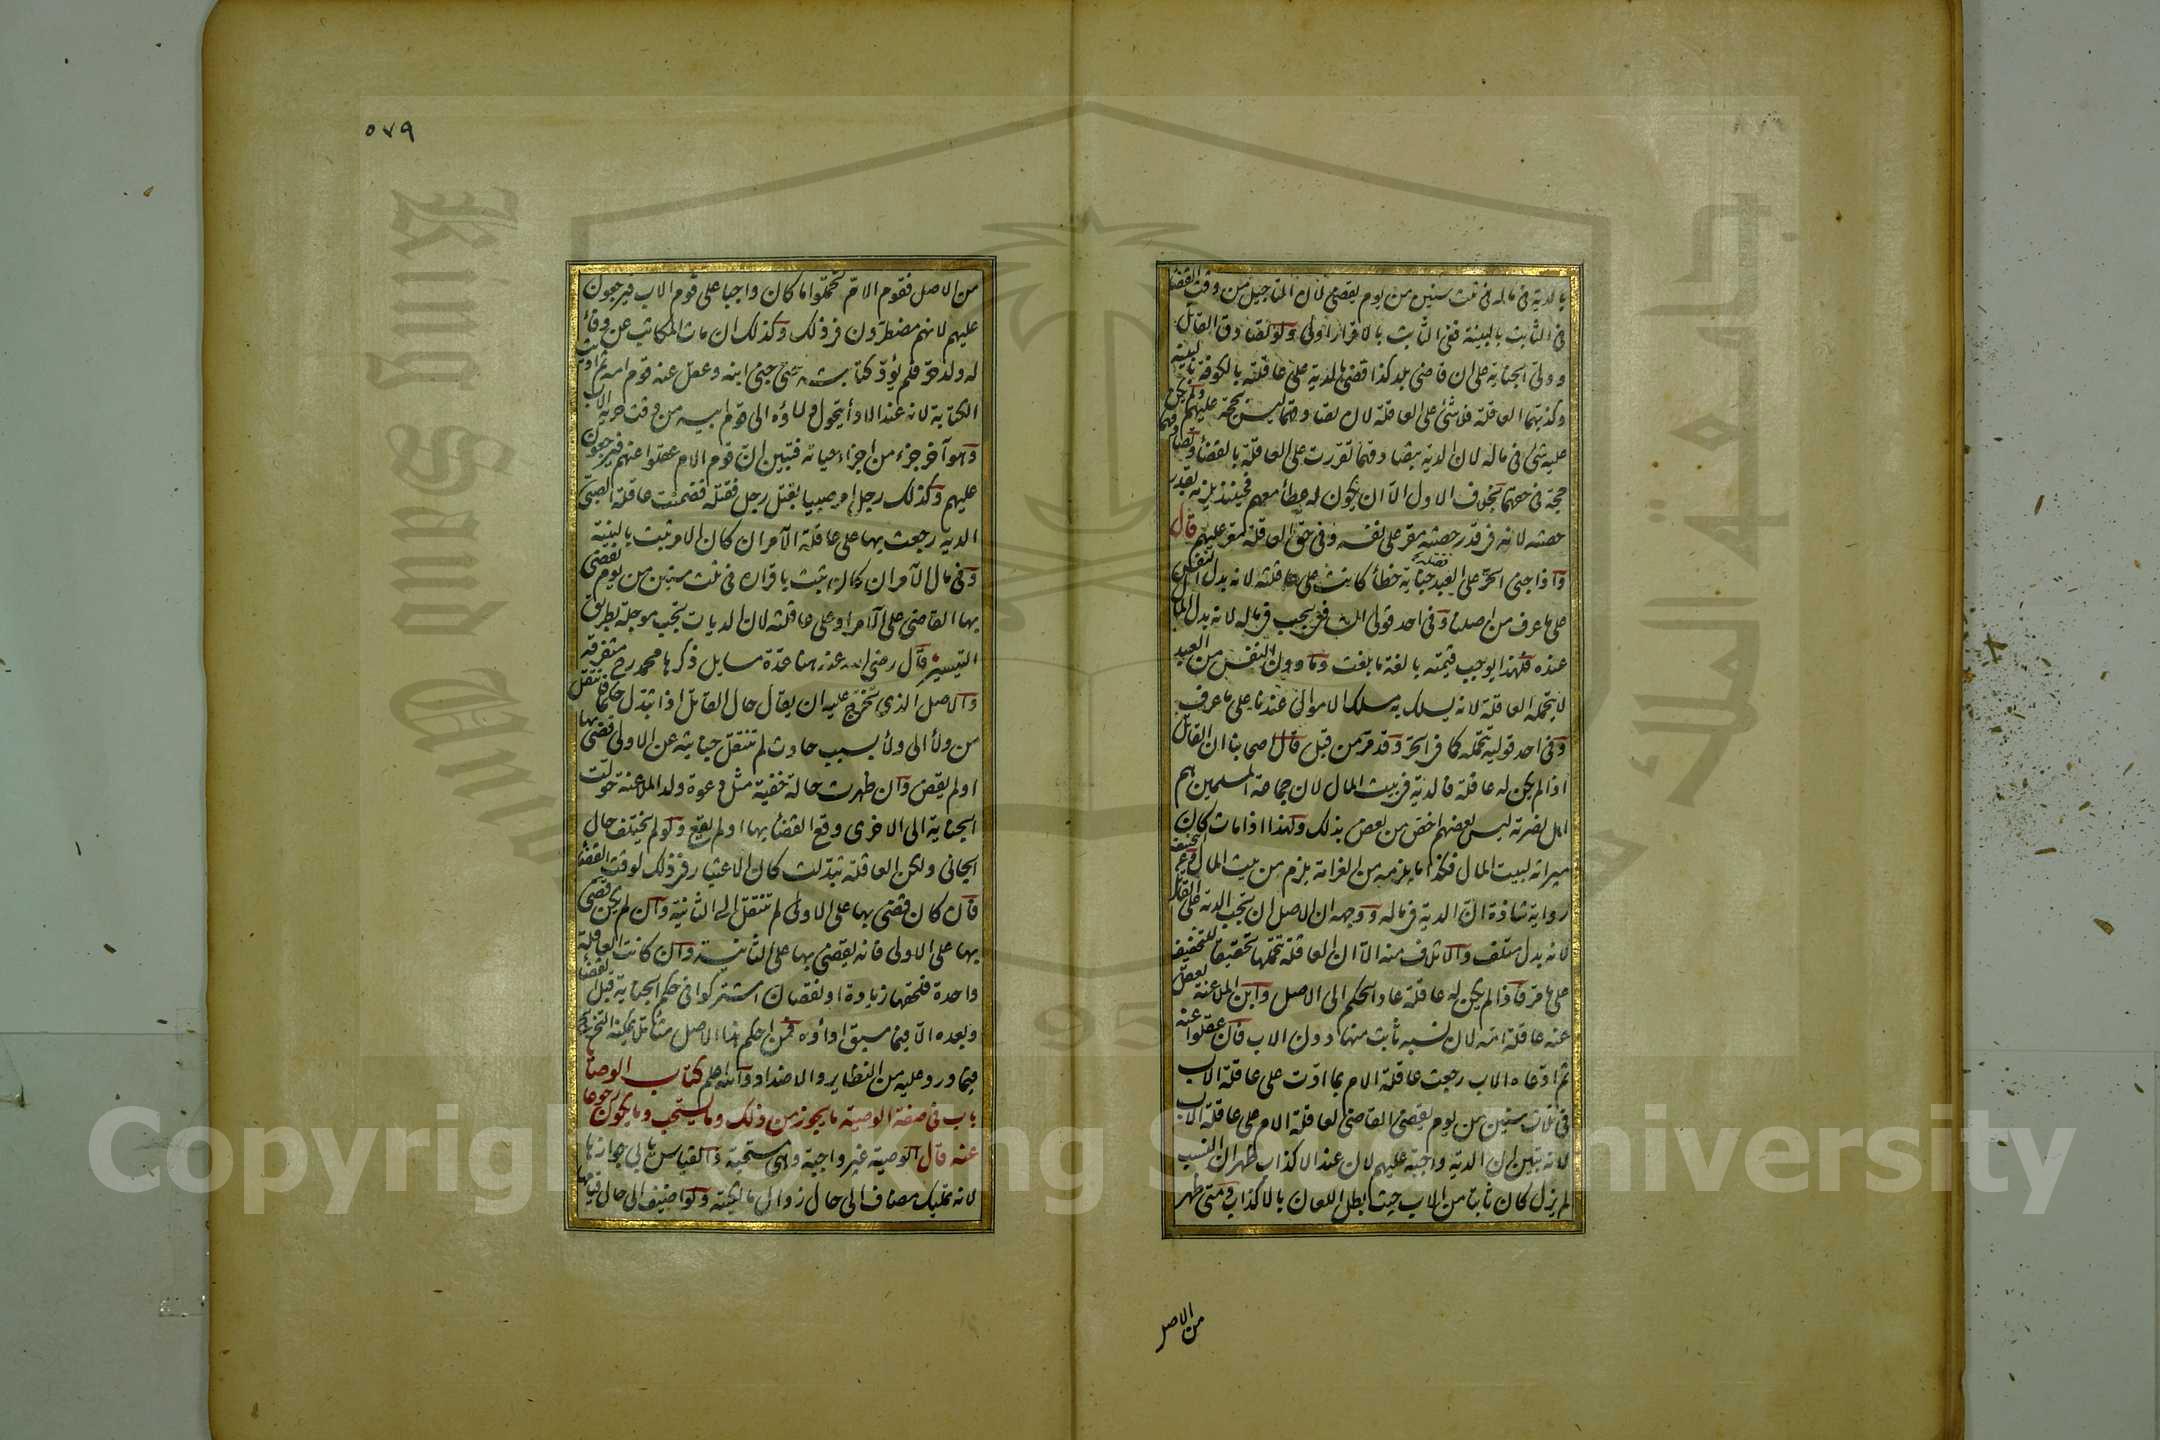 بالدية في ماله في ثلث سنين من يوم يقضي لان التاجيل من وقت القضاء
في الثابت بالبينة ففي الثابت بالاقرار اولى ولو تصادق القاتل
وولي الجناية على ان قاضي بلد كذا قضى بالدية على عاقلته بالكوفة بالبينة
وكذبهما العاقلة فلا شئ على العاقلة لان تصادقهما ليس بحجة عليهم ولم يكن
عليه شئ في ماله لان الدية بتصادقهما تقررت على العاقلة بالقضاء وتصادقهما
حجة في حقهما بخلاف الاول الا ان يكون له عطاء معهم فحينئذ يلزمه بقدر
حصته لانه في قدر حصته مقر على نفسه وفي حق العاقلة مقر عليهم قال
واذا جنى الحر على العبد جناية فقتله خطأ كانت على عاقلته لانه بدل النفس
على ما عرف من اصلنا وفي احد قولي الشافعي يجب في ماله لانه بدل المال
عنده فلهذا يوجب قيمته بالغة ما بلغت وما دون النفس من العبد
لا يتحمله العاقلة لانه يسلك به مسلك الاموال عندنا على ما عرف
وفي احد قوليه تتحمله كما في الحر وقد مر من قبل قال اصحابنا ان القاتل
اذا لم يكن له عاقلة فالدية في بيت المال لان جماعة المسلمين هم
اهل نصرته ليس بعضهم اخص من بعض بذلك ولهذا اذا مات كان
ميراثه لبيت المال فكذا ما يلزمه من الغرامة يلزم من بيت المال وعن ابي حنيفة
رواية شاذة ان الدية في ماله ووجهه ان الاصل ان تجب الدية على القاتل
لانه بدل متلف والاتلاف منه الا ان العاقلة تتحملها تحقيقا للتخفيف
على ما مر فاذا لم يكن له عاقلة عاد الحكم الى الاصل وابن الملاعنة يعقل
عنه عاقلة امه لان نسبه ثابت منها دون الاب فان عقلوا عنه
ثم ادعاه الاب رجعت عاقلة الام بما ادت على عاقلة الاب
في ثلاث سنين من يوم يقضي القاضي لعاقلة الام على عاقلة الاب
لانه تبين ان الدية واجبة عليهم لان عند الاكذاب ظهر ان النسب
لم يزل كان ثابتا من الاب حيث بطل اللعان بالاكذاب ومتى ظهر
من الاصل
٥٧٩
من الاصل فقوم الام تحملوا ما كان واجبا على قوم الاب فيرجعون
عليهم لانهم مضطرون في ذلك وكذلك ان مات المكاتب عن وفاء
له ولد حر فلم يؤد كتابته حتى جنى ابنه وعقل عنه قوم امه ثم اديت
الكتابة لانه عند الاداء يتحول ولاؤه الى قوم ابيه من وقت حرية الاب
وهو آخر جزء من اجزاء حياته فتبين ان قوم الام عقلوا عنهم فيرجعون
عليهم وكذلك رجل امر صبيا بقتل رجل فقتله فضمنت عاقلة الصبي
الدية رجعت بها على عاقلة الآمر ان كان الامر ثبت بالبينة
وفي مال الآمر ان كان ثبت باقراره في ثلث سنين من يوم يقضي
بها القاضي على الآمر او على عاقلته لان الديات تجب موجلة بطريق
التيسير قال رضي الله عنه هنا عدة مسايل ذكرها محمد رح متفرقة
والاصل الذي يخرج عليه ان يقال حال القاتل اذا تبدل حكما فانتقل
من ولاء الى ولاء بسبب حادث لم تنتقل جنايته عن الاولى قضي بها
او لم يقض وان ظهرت حالة خفية مثل دعوة ولد الملاعنة حولت
الجناية الى الاخرى وقع القضاء بها او لم يقع ولو لم يختلف حال
الجاني ولكن العاقلة تبدلت كان الاعتبار في ذلك لوقت القضاء
فان كان قضي بها على الاولى لم تنتقل الى الثانية وان لم يكن قضي
بها على الاولى فانه يقضي بها على الثانية وان كانت العاقلة
واحدة فلحقها زيادة او نقصان اشتركوا في حكم الجناية قبل القضاء
وبعده الا فيما سبق اداؤه فمن احكم هذا الاصل متاملا يمكنه التخريج
فيما ورد عليه من النظاير والاضداد والله اعلم كتاب الوصايا
باب في صفة الوصية ما يجوز من ذلك وما يستحب وما يكون رجوعا
عنه قال الوصية غير واجبة وهي مستحبة والقياس يابى جوازها
لانه تمليك مضاف الى حال زوال مالكيته ولو اضيف الى حال قيامها
King Saud University
Copyright © King Saud University